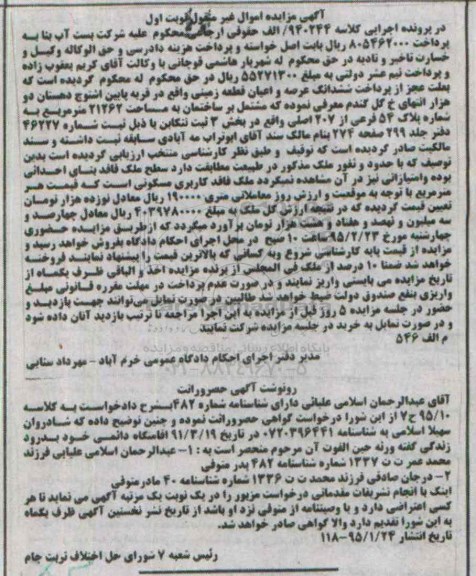 آگهی مزایده اموال غیر منقول نوبت اول
در پرونده اجرایی کلاسه ۹۴۰۲۴۴/الف حقوقی ارجاعی محکوم علیه شرکت بست آب بتا به
پرداخت ۸۰۵۴۶۲۰۰۰ ریال بابت اصل خواسته و پرداخت هزینه دادرسی و حق الوکاله وکیل و
خسارت تاخیر و تادیه در حق محکوم له شهریار هاشمی قوچانی با وکالت آقای کریم یعقوب زاده
و پرداخت نیم عشر دولتی به مبلغ ۵۵۲۷۱۳۰۰ ریال در حق محکوم له محکوم گردیده است که
بعلت عجز از پرداخت ششدانگ عرصه و اعیان قطعه زمینی واقع در قریه پایین اشتوج دهستان دو
هزار انتهای خ گل گندم معرفی نموده که مشتمل بر ساختمان به مساحت ۲۱۲۶۲ مترمربع به
شماره پلاک ۵۴ فرعی از ۲۰۷ اصلی واقع در بخش ۳ ثبت تنکابن با ذیل ثبت شماره ۴۶۲۲۷
دفتر جلد ۲۹۹ صفحه ۲۷۴ بنام مالک سند آقای ابوتراب مه آبادی سابقه ثبت داشته و سند
مالکیت صادر گردیده است که توقیف و طبق نظر کارشناسی منتخب ارزیابی گردیده است بدین
توصیف که با حدود و ثغور ملک مذکور در طبیعت مطابقت دارد سطح ملک فاقد بنای احداثی
بوده وامتیازاتی نیز در آن مشاهده نمیگردد ملک فاقد کاربری مسکونی است که قیمت هر
مترمربع با توجه به موقعیت و ارزش روز معاملاتی متری ۱۹۰۰۰۰ ریال معادل نوزده هزار تومان
تعیین قیمت گردیده که در نتیجه ارزش کل ملک به مبلغ ۴۰۳۹۷۸۰۰۰۰ ریال معادل چهارصد و
سه میلیون و نهصد و هفتاد و هشت هزار تومان برآورد میگردد که ازطریق مزایده حضوری
چهارشنبه مورخ ۹۵/۲/۲۳ ساعت ۱۰ صبح در محل اجرای احکام دادگاه بفروش خواهد رسید و
مزایده از قیمت پایه کارشناسی شروع وبه کسانی که بالاترین قیمت را پیشنهاد نمایند فروخته
خواهد شد ضمنا ۱۰ درصد از ملک فی المجلس از برنده مزایده اخذ و الباقی ظرف یکماه از
تاریخ مزایده می بایستی واریز نمایند و در صورت عدم پرداخت در مهلت مقرره قانونی مبلغ
واریزی بنفع صندوق دولت ضبط خواهد شد طالبین در صورت تمایل می‌توانند جهت بازدید و
حضور در جلسه مزایده ۵ روز قبل از مزایده به این اجرا مراجعه تا ترتیب بازدید آنان داده شود
و در صورت تمایل به خرید در جلسه مزایده شرکت نمایند
م الف ۵۴۶
مدیر دفتر اجرای احکام دادگاه عمومی خرم آباد - مهرداد سنایی
رونوشت آگهی حصروراثت
آقای عبدالرحمان اسلامی علیائی دارای شناسنامه شماره ۴۸۲ بشرح دادخواست به کلاسه
۹۵/۱۰ ح۷ از این شورا درخواست گواهی حصروراثت نموده و چنین توضیح داده که شادروان
سهیلا اسلامی به شناسنامه ۰۷۲۰۳۹۶۴۴۱ در تاریخ ۹۱/۳/۱۹ اقامتگاه دائمی خود بدرود
زندگی گفته ورثه حین الفوت آن مرحوم منحصر است به : ۱- عبدالرحمان اسلامی علیایی فرزند
محمد عمر ت ت ۱۳۳۷ شماره شناسنامه ۴۸۲ پدر متوفی
۲- درجان صادقی فرزند محمد ت ت ۱۳۳۶ شماره شناسنامه ۴۰ مادرمتوفی
اینک با انجام تشریفات مقدماتی درخواست مزبور را در یک نوبت یک مرتبه آگهی می نماید تا هر
کسی اعتراضی دارد و یا وصیتنامه از متوفی نزد او باشد از تاریخ نشر نخستین آگهی ظرف یکماه
به این شورا تقدیم دارد والا گواهی صادر خواهد شد.
تاریخ انتشار ۹۵/۱/۲۴-۱۱۸
رئیس شعبه ۷ شورای حل اختلاف تربت جام